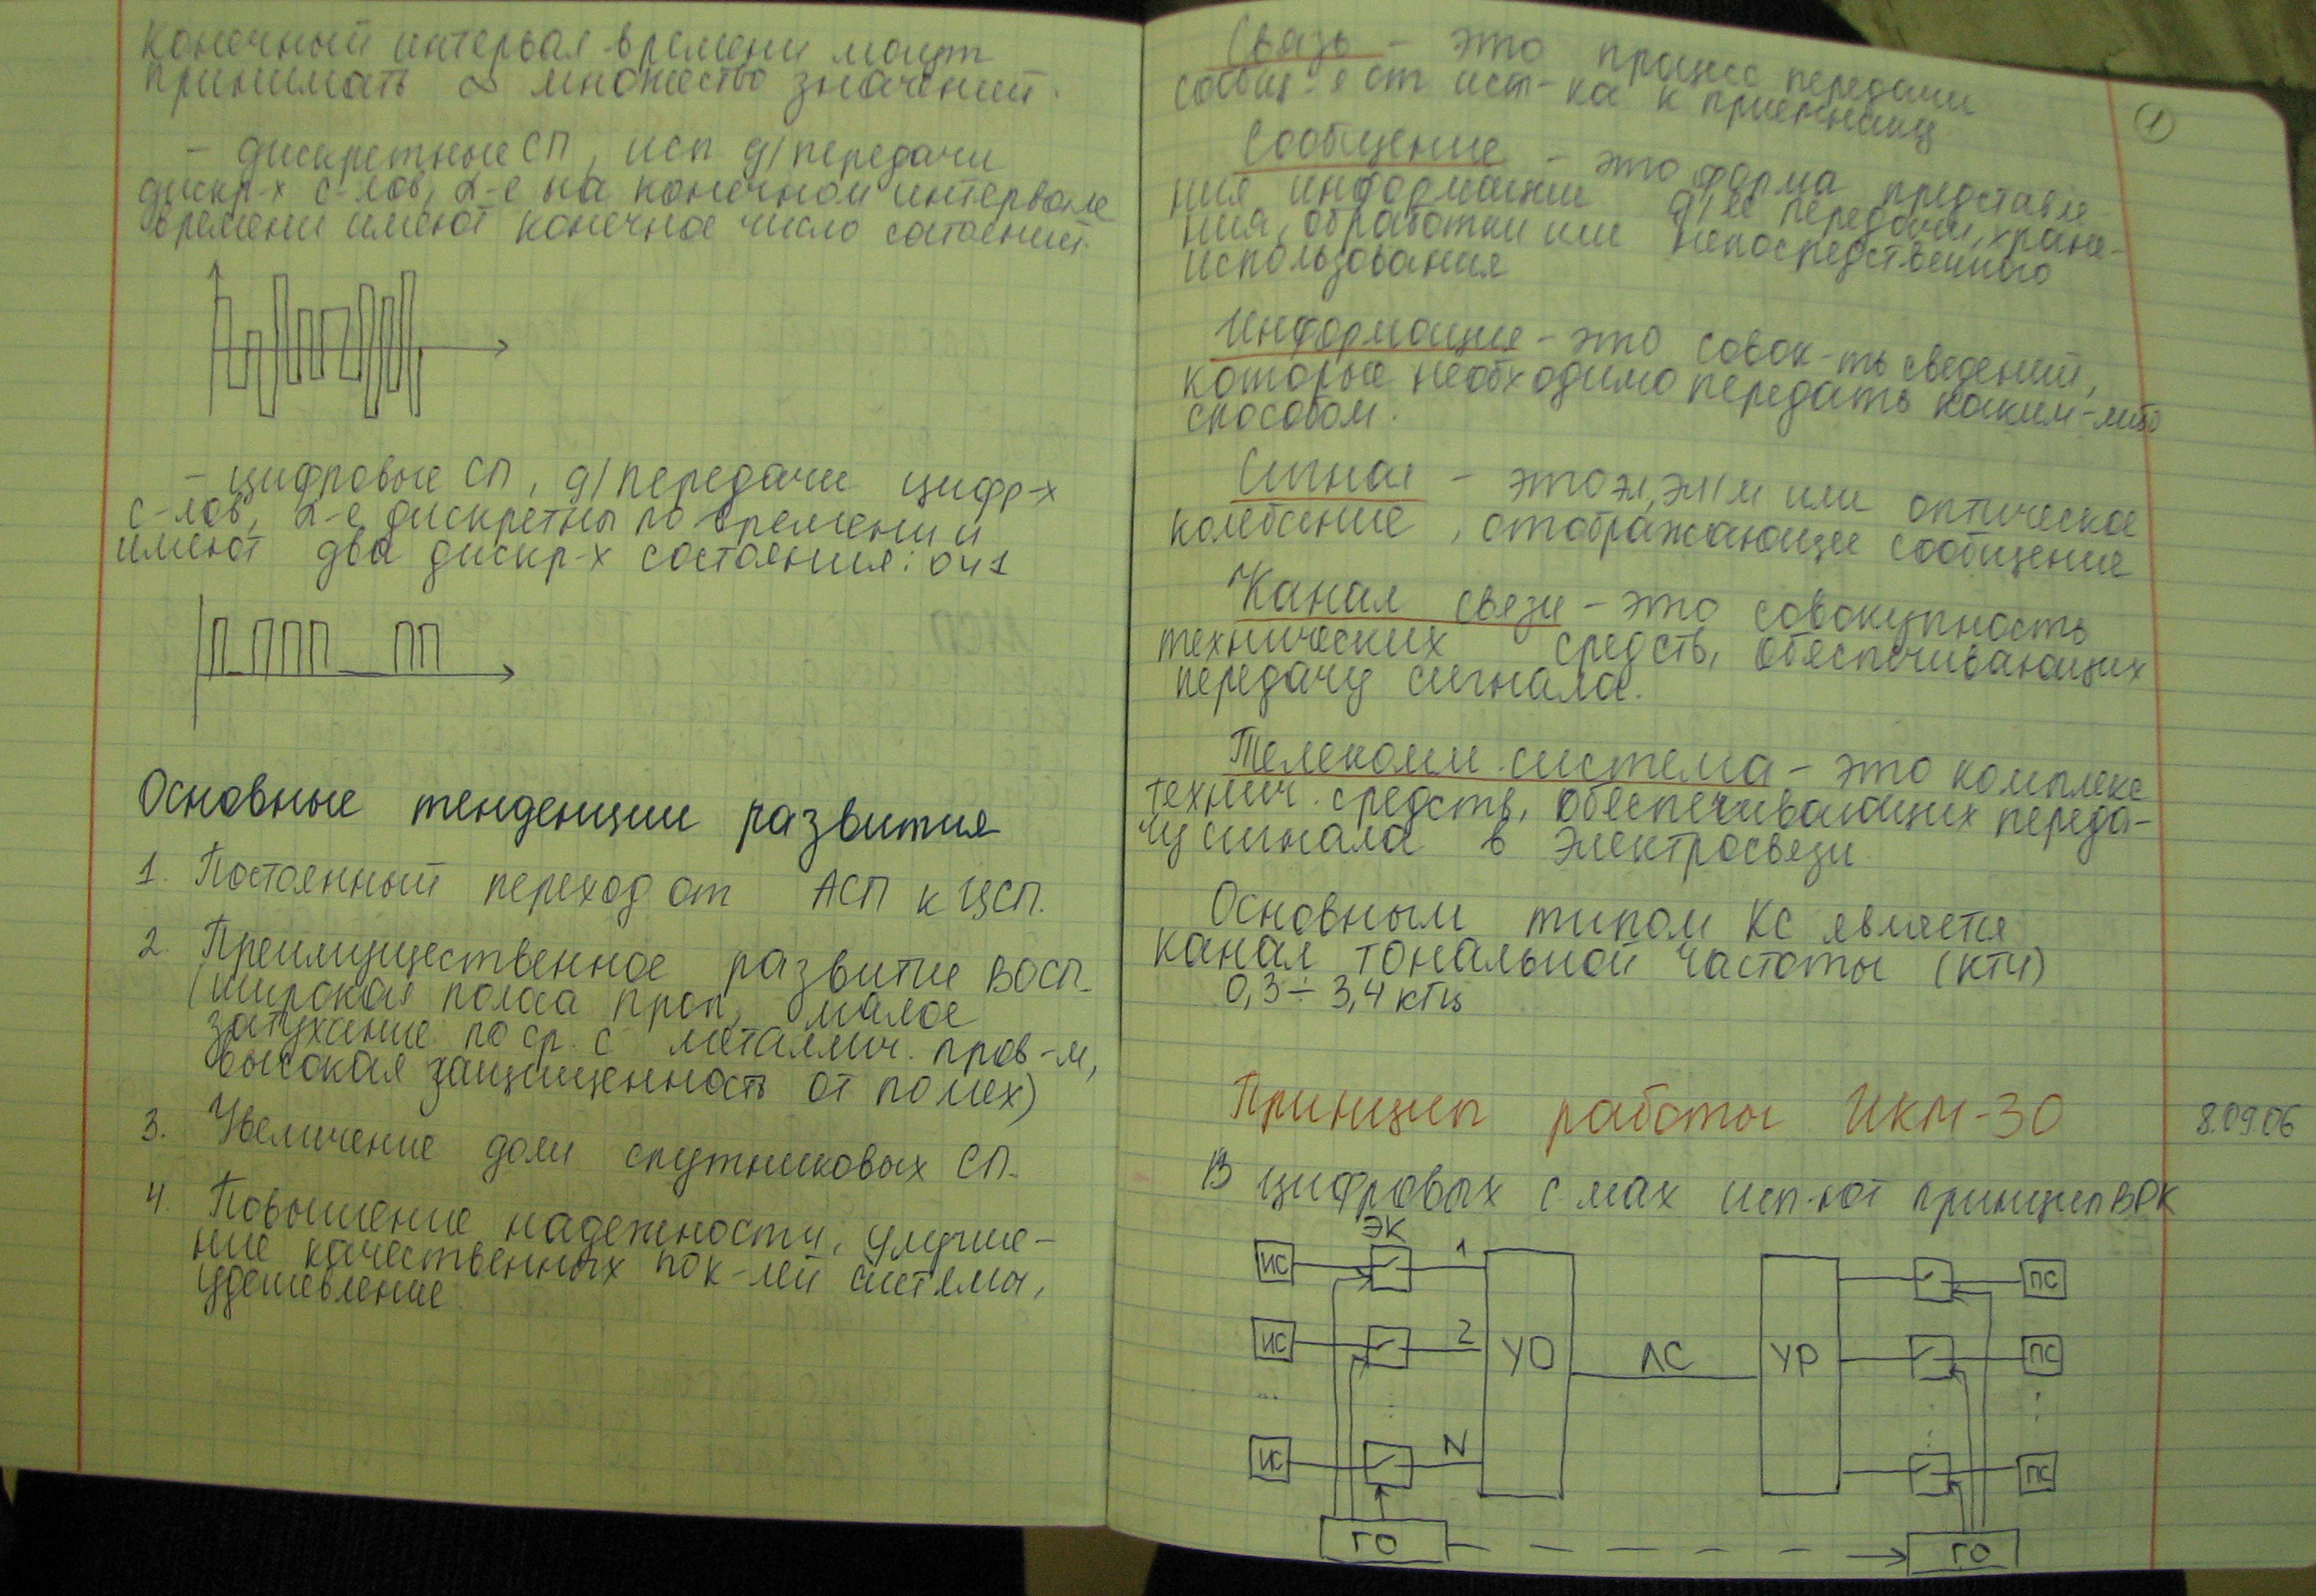 конечный интервал времени могут
принимать ∞ множество значений.
- дискретные СП, исп д/передачи
дискр-х с-лов, α-е на конечном интервале
времени имеют конечное число состояний.
- цифровые СП, д/передачи цифр-х
с-лов, α-е дискретны по времени и
имеют два дискр-х состояния: 0 и 1
Основные тенденции развития
1. Постоянный переход от АСП к ЦСП.
2. Преимущественное развитие ВОСП
(широкая полоса проп, малое
затухание по ср. с металлич. пров-м,
высокая защищенность от помех)
3. Увеличение доли спутниковых СП.
4. Повышение надежности, улучше-
ние качественных пок-лей системы,
удешевление.
1
Связь - это процесс передачи
сообщ-я от ист-ка к приемнику
Сообщение - это форма представле
ния информации д/ее передачи, хране-
ния, обработки или непосредственного
использования
Информация - это совок-ть сведений,
которые необходимо передать каким-либо
способом.
Сигнал - это эл, эл/м или оптическое
колебание, отображающее сообщение
Канал связи - это совокупность
технических средств, обеспечивающих
передачу сигнала.
Телекомм. система - это комплекс
технич. средств, обеспечивающих переда-
чу сигнала в электросвязи
Основным типом КС является
канал тональной частоты (КТЧ)
0,3 ÷ 3,4 кГц
Принцип работы ИКМ-30
8.09.06
В цифровых с-мах исп-ют принцип ВРК
ЭК
ИС 1 ПС
ИС 2 УО ЛС УР ПС
... ⋮ ⋮ ⋮
ИС N ПС
ГО ГО